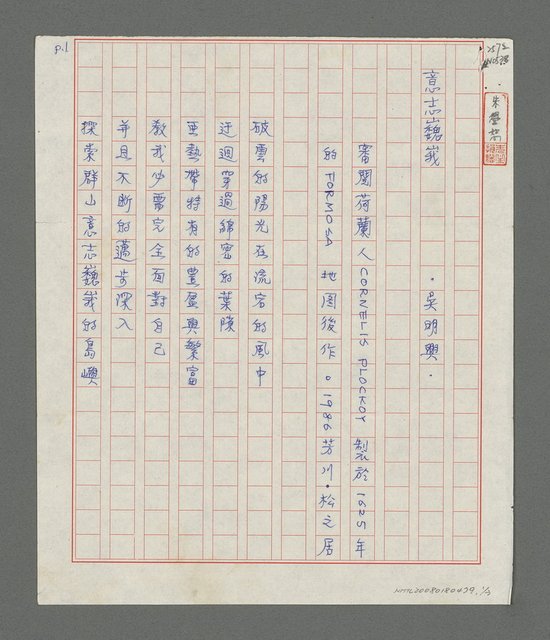 p.1
意志巍峩
·吳明興·
審閱荷蘭人CORNELIS PLOCKOY 製於1625年
的FORMOSA 地图後作。1986芳川·松之居
破雲的陽光在流宕的風中
迂迴穿過綿密的葉隙
亜熱帶特有的豊盈與繁富
教我必需完全面對自己
并且不断的邁步深入
探索群山意志巍峩的島嶼
NMTL20080180429, 1/3